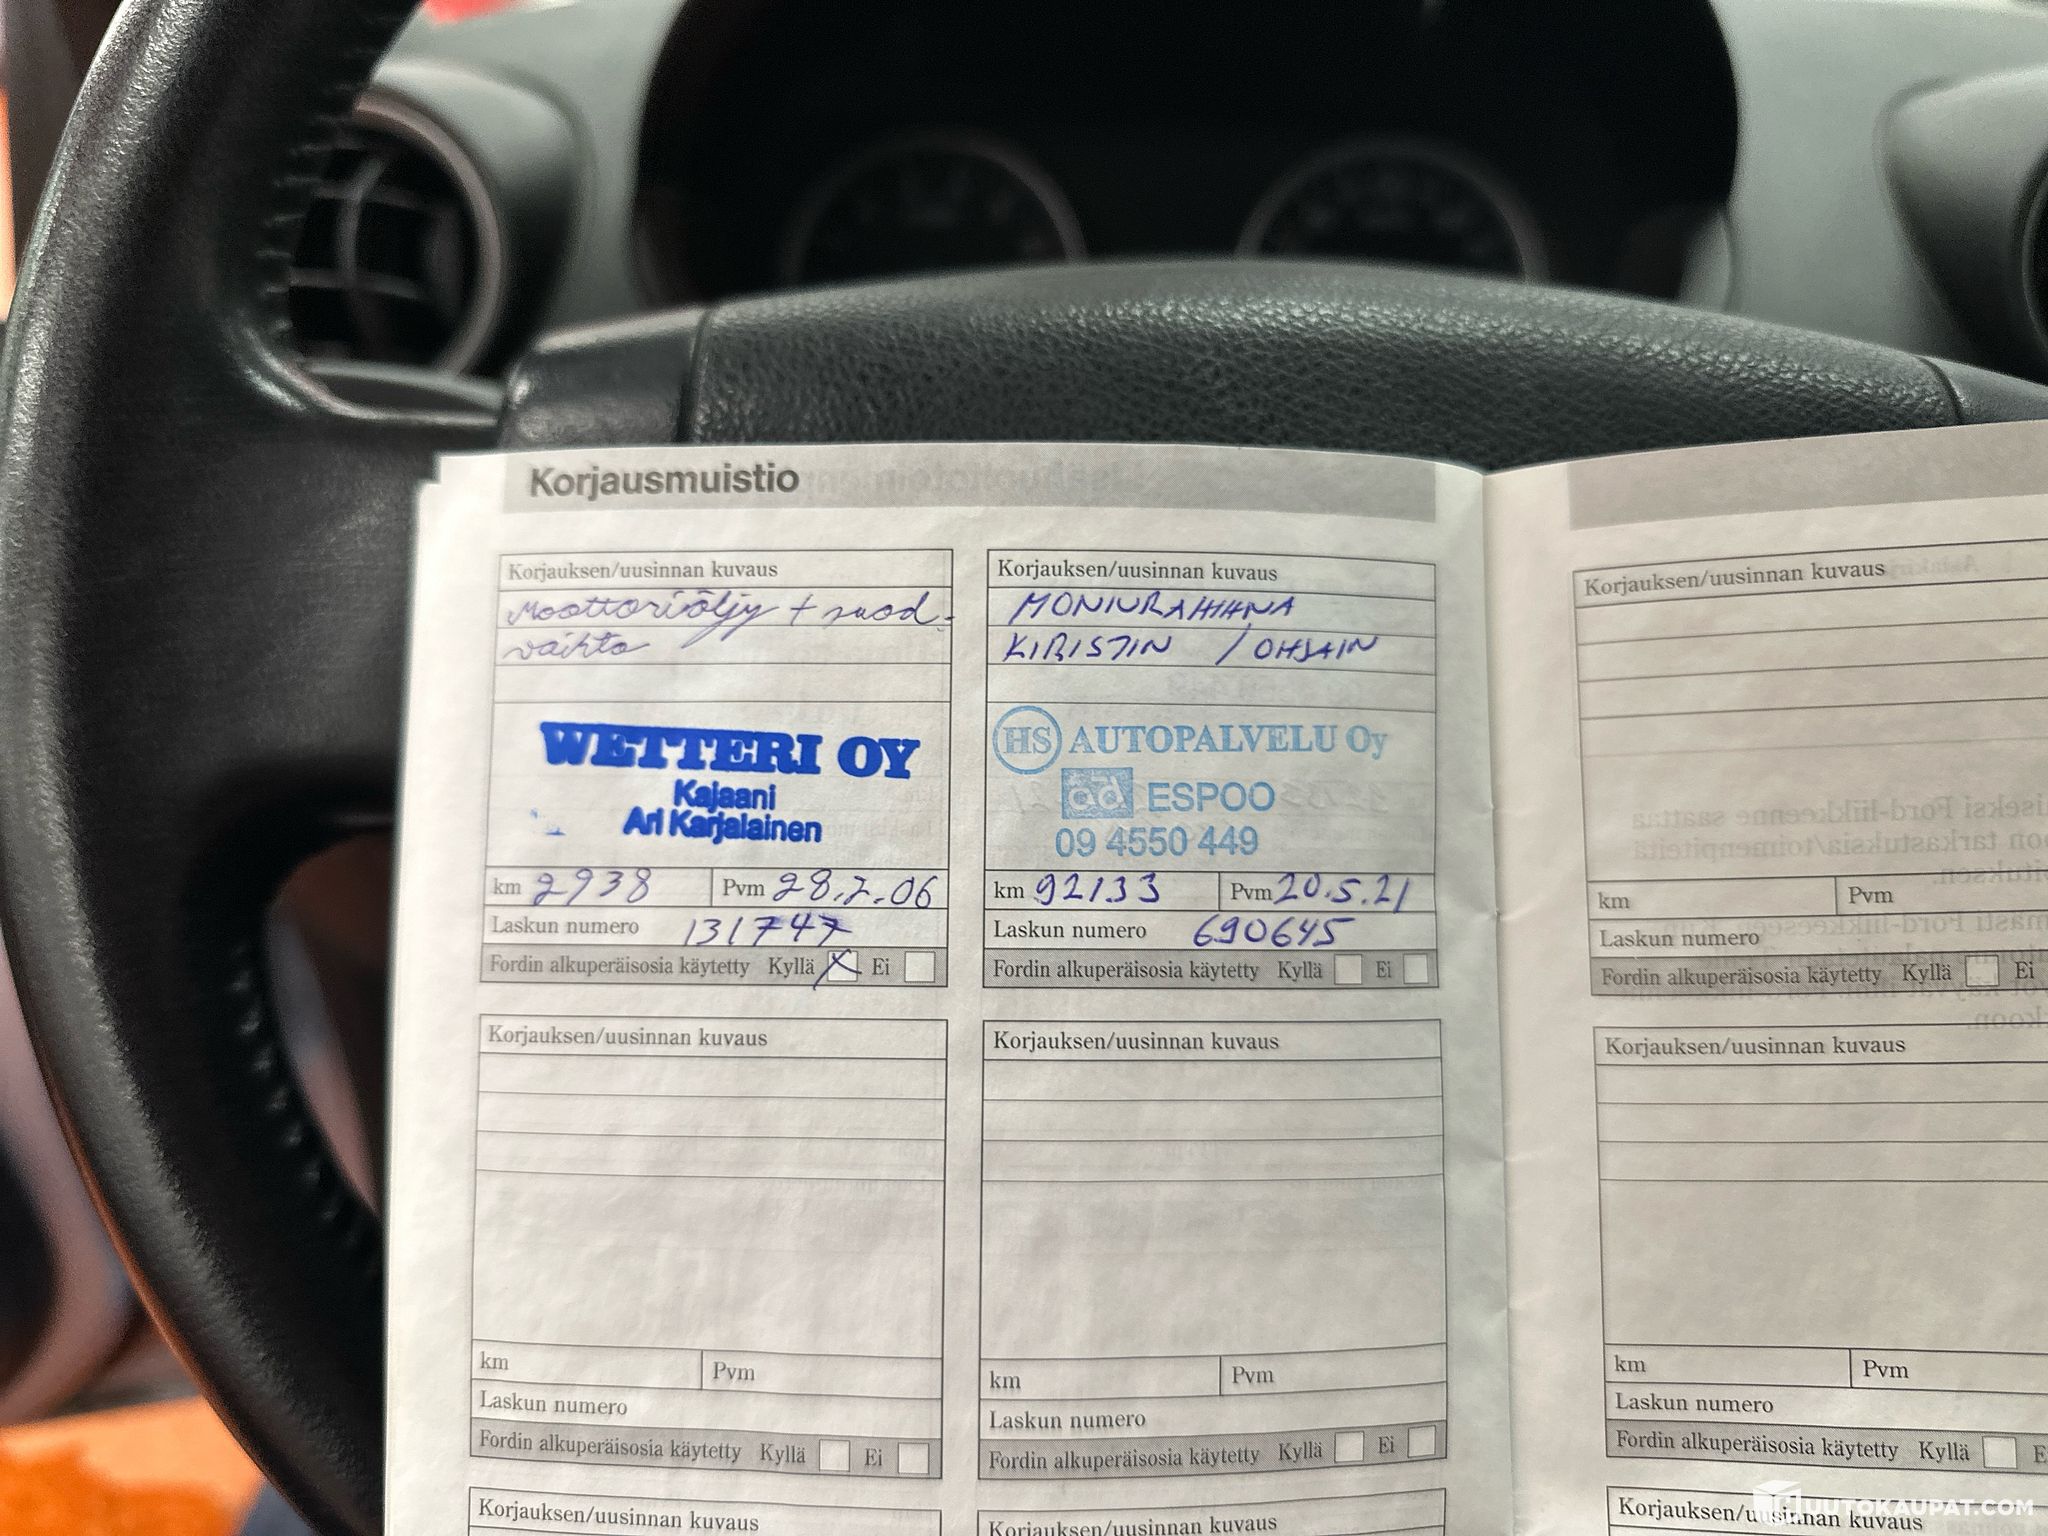 Korjausmuistio
Korjauksen/uusinnan kuvaus
Moottoriöljy + suod.
vaihto
WETTERI OY
Kajaani
Ari Karjalainen
km 2938 Pvm 28.2.06
Laskun numero 131747
Fordin alkuperäisosia käytetty Kyllä X Ei
Korjauksen/uusinnan kuvaus
MONIURAHIHNA
KIRISTIN / OHJAIN
HS AUTOPALVELU Oy
ad ESPOO
09 4550 449
km 92133 Pvm 20.5.21
Laskun numero 690645
Fordin alkuperäisosia käytetty Kyllä Ei
Korjauksen/uusinnan kuvaus
km Pvm
Laskun numero
Fordin alkuperäisosia käytetty Kyllä Ei
Korjauksen/uusinnan kuvaus
km Pvm
Laskun numero
Fordin alkuperäisosia käytetty Kyllä Ei
Korjauksen/uusinnan kuvaus
Korjauksen/uusinnan kuvaus
Korjauksen/uusinnan kuvaus
km Pvm
Laskun numero
Fordin alkuperäisosia käytetty Kyllä Ei
Korjauksen/uusinnan kuvaus
km Pvm
Laskun numero
Fordin alkuperäisosia käytetty Kyllä E
Korjauksen/uusinnan kuvaus
UUTOKAUPAT.COM